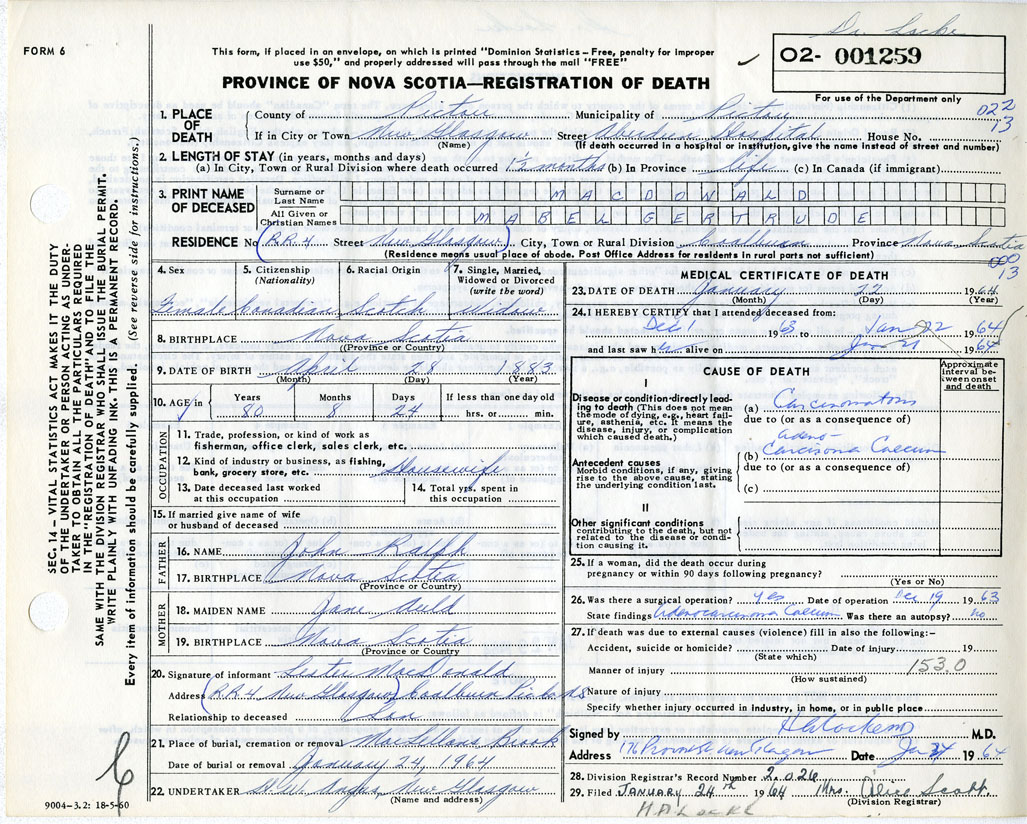 Dr. Locke
FORM 6
This form, if placed in an envelope, on which is printed "Dominion Statistics – Free, penalty for improper
use $50," and properly addressed will pass through the mail "FREE"
O2- 001259
PROVINCE OF NOVA SCOTIA—REGISTRATION OF DEATH
For use of the Department only
022
13
1. PLACE OF DEATH
County of Pictou Municipality of Pictou
If in City or Town New Glasgow Street Aberdeen Hospital House No.
(Name) (If death occurred in a hospital or institution, give the name instead of street and number)
2. LENGTH OF STAY (in years, months and days)
(a) In City, Town or Rural Division where death occurred 1½ months (b) In Province life (c) In Canada (if immigrant)
3. PRINT NAME OF DECEASED
Surname or Last Name MACDONALD
All Given or Christian Names MABEL GERTRUDE
RESIDENCE No (RR 4 Street New Glasgow) City, Town or Rural Division Coalburn Province Nova Scotia
(Residence means usual place of abode. Post Office Address for residents in rural parts not sufficient)
000
13
4. Sex
Female
5. Citizenship (Nationality)
Canadian
6. Racial Origin
Scotch
7. Single, Married, Widowed or Divorced (write the word)
Widow
8. BIRTHPLACE Nova Scotia
(Province or Country)
9. DATE OF BIRTH April 28 1883
(Month) (Day) (Year)
10. AGE in
Years Months Days If less than one day old
80 8 24 hrs. or min.
OCCUPATION
11. Trade, profession, or kind of work as
fisherman, office clerk, sales clerk, etc.
12. Kind of industry or business, as fishing,
bank, grocery store, etc. Housewife
13. Date deceased last worked
at this occupation
14. Total yrs. spent in
this occupation
15. If married give name of wife
or husband of deceased
FATHER
16. NAME John Ralph
17. BIRTHPLACE Nova Scotia
(Province or Country)
MOTHER
18. MAIDEN NAME Jane Auld
19. BIRTHPLACE Nova Scotia
(Province or Country)
20. Signature of informant Lester MacDonald
Address (RR 4 New Glasgow) Coalburn
Relationship to deceased Son
21. Place of burial, cremation or removal MacLellans Brook
Date of burial or removal January 24, 1964
22. UNDERTAKER New Glasgow
(Name and address)
MEDICAL CERTIFICATE OF DEATH
23. DATE OF DEATH January 22 1964
(Month) (Day) (Year)
24. I HEREBY CERTIFY that I attended deceased from:
Dec 1 1963 to Jan 22 1964
and last saw h alive on Jan 21 1964
CAUSE OF DEATH
Approximate interval between onset and death
I
Disease or condition directly leading to death (This does not mean the mode of dying, e.g., heart failure, asthenia, etc. It means the disease, injury, or complication which caused death.)
(a) Carcinomatosis
due to (or as a consequence of)
adeno-
(b) Carcinoma Caecum
due to (or as a consequence of)
Antecedent causes
Morbid conditions, if any, giving rise to the above cause, stating the underlying condition last.
(c)
II
Other significant conditions
contributing to the death, but not related to the disease or condition causing it.
25. If a woman, did the death occur during
pregnancy or within 90 days following pregnancy?
(Yes or No)
26. Was there a surgical operation? yes Date of operation Dec 19 1963
State findings Adenocarcinoma Caecum Was there an autopsy? no
27. If death was due to external causes (violence) fill in also the following:–
Accident, suicide or homicide? Date of injury 19
(State which)
153.0
Manner of injury
(How sustained)
Nature of injury
Specify whether injury occurred in industry, in home, or in public place
Signed by M.D.
Address Date Jan 24 1964
28. Division Registrar's Record Number 2026
29. Filed JANUARY 24th 1964 Mrs. Alice Scott
(Division Registrar)
H.A. LOCKE
9004–3.2: 18-5-60
SEC. 14 – VITAL STATISTICS ACT MAKES IT THE DUTY
OF THE UNDERTAKER OR PERSON ACTING AS UNDER-
TAKER TO OBTAIN ALL THE PARTICULARS REQUIRED
IN THE "REGISTRATION OF DEATH" AND TO FILE THE
SAME WITH THE DIVISION REGISTRAR WHO SHALL ISSUE THE BURIAL PERMIT.
WRITE PLAINLY WITH UNFADING INK. THIS IS A PERMANENT RECORD.
Every item of information should be carefully supplied. (See reverse side for instructions.)